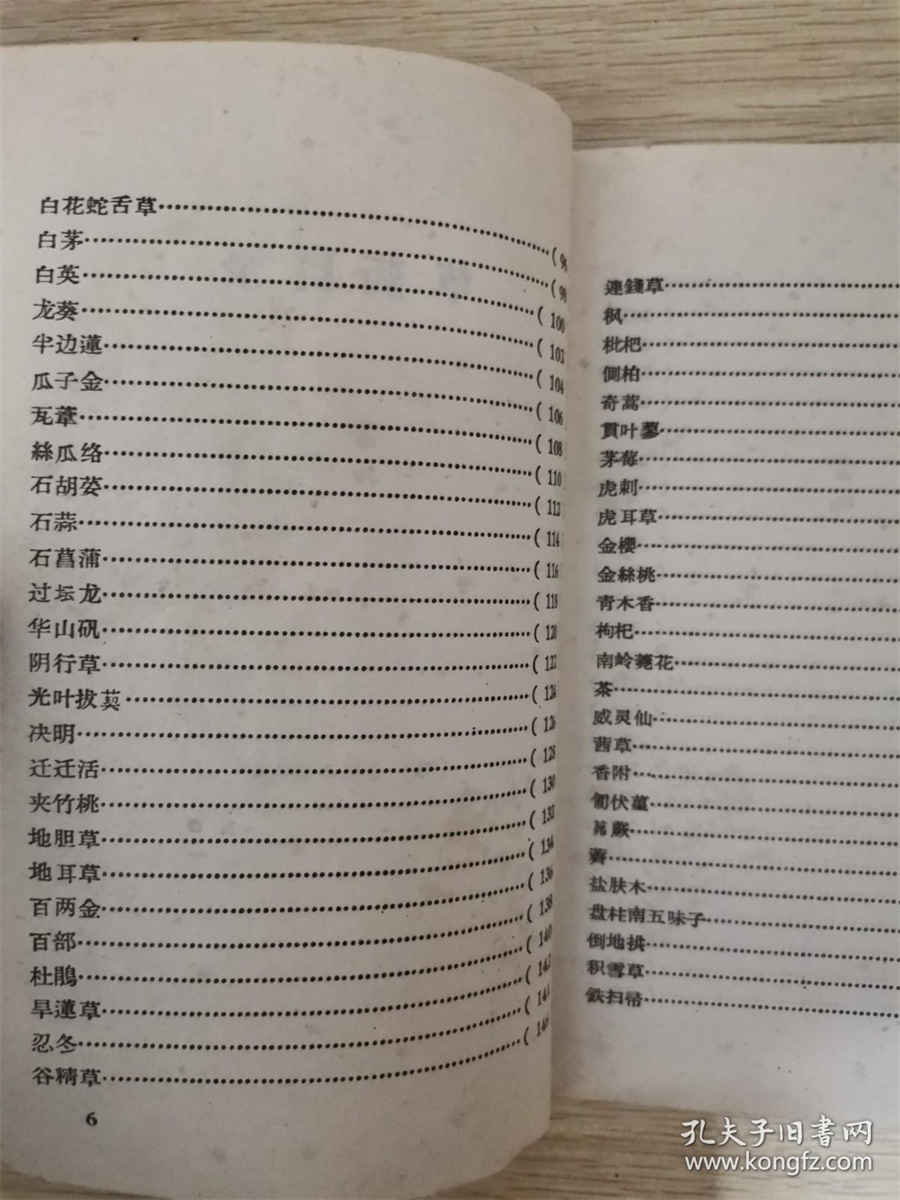 白花蛇舌草……( 96
白茅……( 98
白英……( 100
龙葵……( 102
半边蓮……( 104
瓜子金……( 106
瓦葦……( 108
絲瓜络……( 110
石胡荽……( 112
石蒜……( 114
石菖蒲……( 116
过坛龙……( 118
华山矾……( 120
阴行草……( 122
光叶拔葜……( 124
决明……( 126
迁迁活……( 128
夹竹桃……( 130
地胆草……( 132
地耳草……( 134
百两金……( 136
百部……( 138
杜鵑……( 140
旱蓮草……( 142
忍冬……( 144
谷精草……( 146
6
連錢草……
枫……
枇杷……
側柏……
奇蒿……
貫叶蓼……
茅莓……
虎刺……
虎耳草……
金櫻……
金絲桃……
青木香……
枸杞……
南岭蕘花……
茶……
威灵仙……
茜草……
香附……
匍伏堇……
蕨……
薺……
盐肤木……
盘柱南五味子……
倒地拱……
积雪草……
鉄扫帚……
孔夫子旧書网
www.kongfz.com